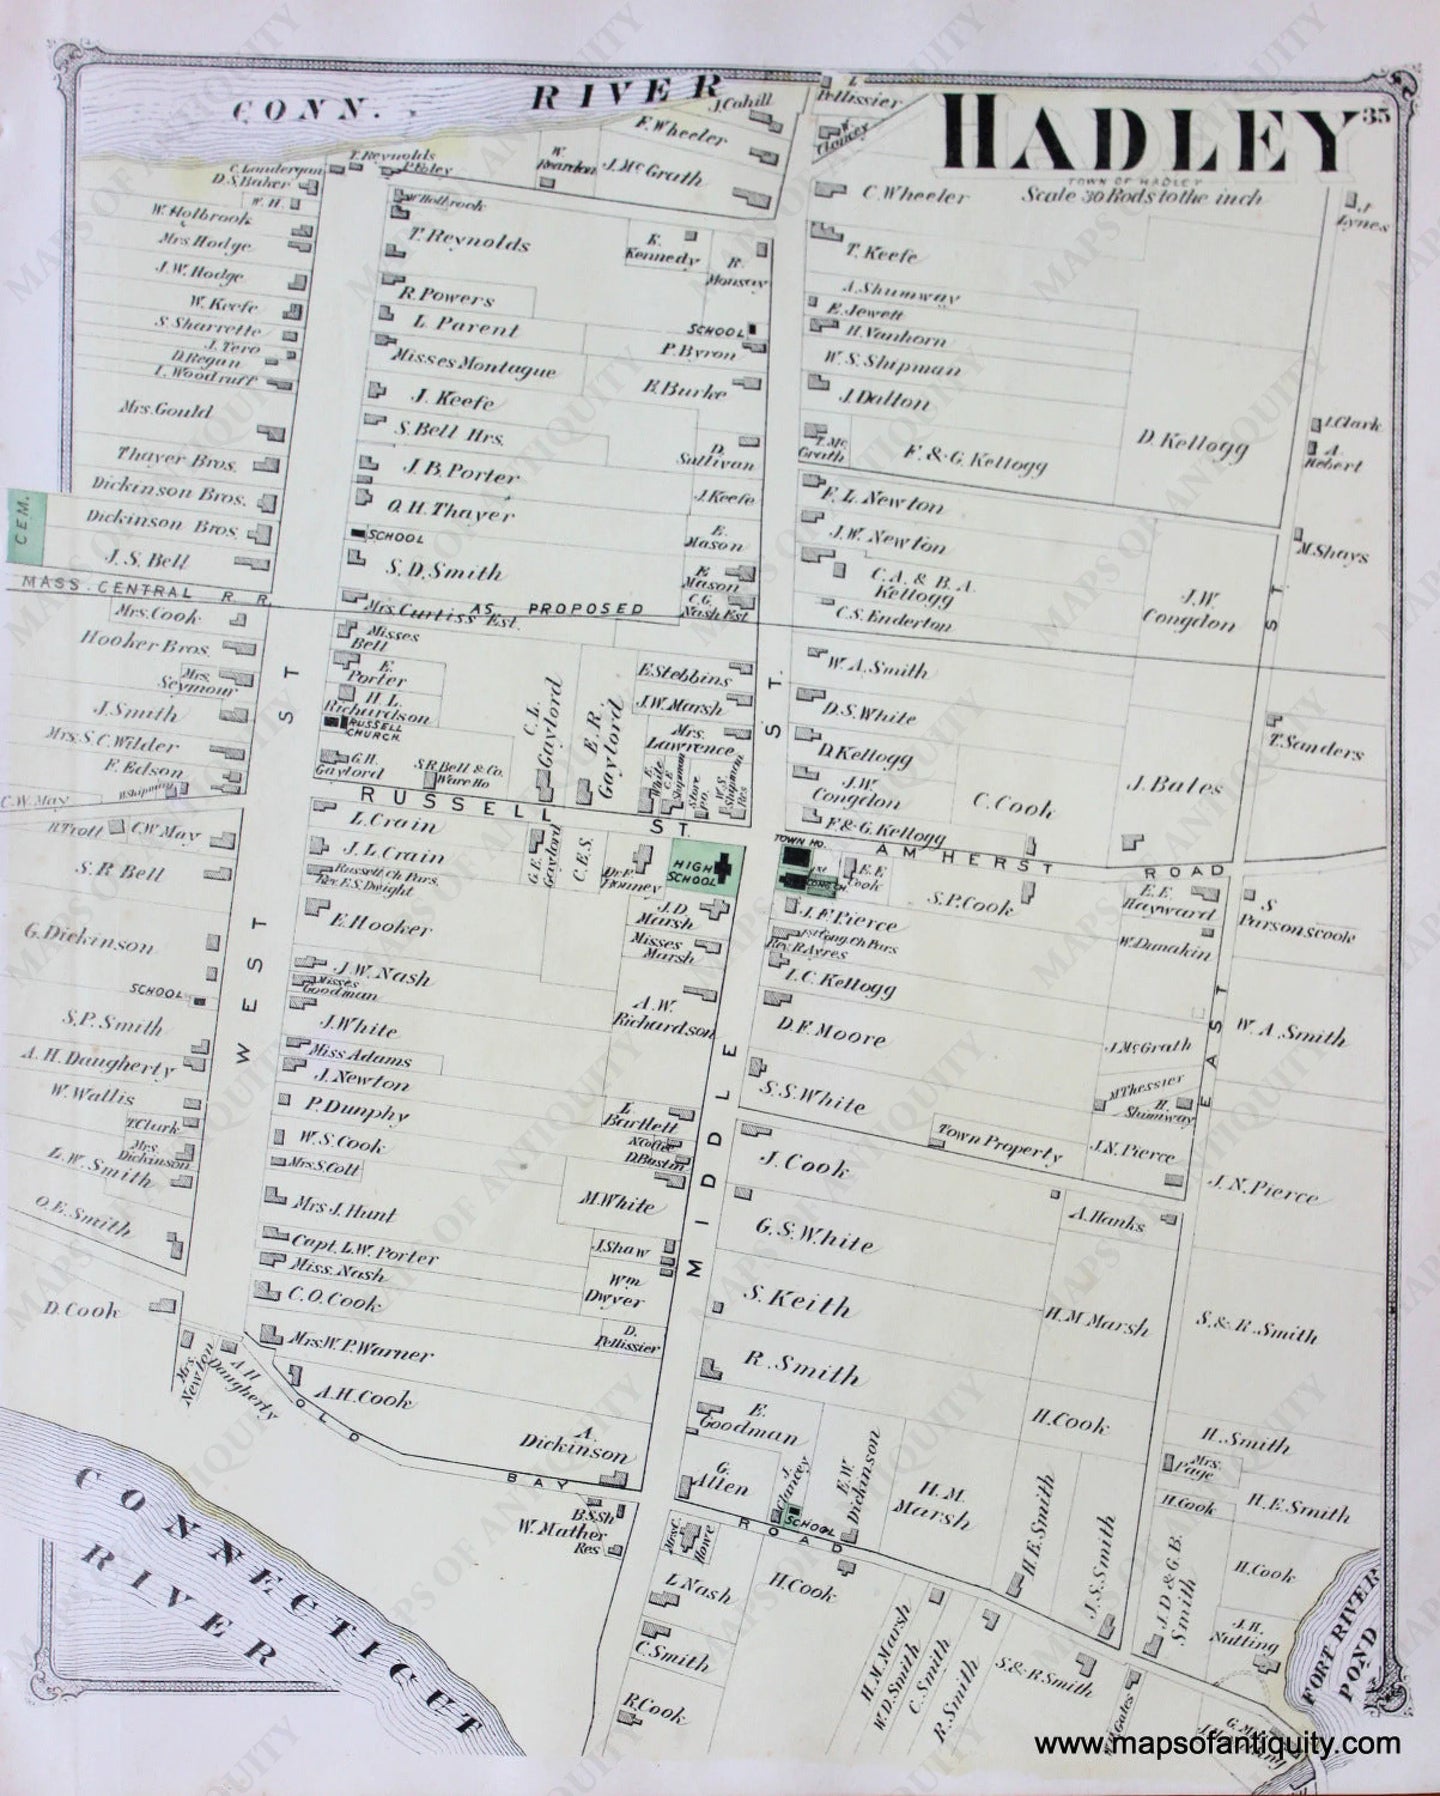 35
HADLEY
TOWN OF HADLEY
Scale 30 Rods to the inch
CONN. RIVER
J. Cahill
F. Wheeler
Pellissier
W. Clancey
C. Landergan
T. Reynolds
P. Foley
D.S. Baker
W. H.
W. Reardon
J. McGrath
C. Wheeler
J. Lynes
W. Holbrook
W. Holbrook
Mrs Hodge
T. Reynolds
K. Kennedy
T. Keefe
J.W. Hodge
A. Shumway
W. Keefe
R. Powers
E. Jewett
S. Sharrette
L. Parent
SCHOOL
H. Vanhorn
J. Tero
D. Regan
Misses Montague
P. Byron
W.S. Shipman
L. Woodruff
E. Burke
J. Dalton
Mrs. Gould
J. Keefe
S. Bell Hrs.
D. Sullivan
T. Mc Grath
F. & G. Kellogg
D. Kellogg
J. Clark
A. Hebert
Thayer Bros.
J. B. Porter
Dickinson Bros.
J. Keefe
F. L. Newton
CEM.
Dickinson Bros.
O. H. Thayer
SCHOOL
E. Mason
J.W. Newton
M. Shays
J. S. Bell
S. D. Smith
E. Mason
C.A. & B.A. Kellogg
J.W. Congdon
MASS. CENTRAL R. R.
AS PROPOSED
Mrs. Curtiss Est.
C.G. Nash Est
C.S. Enderton
Mrs. Cook
Hooker Bros.
Misses Bell
E. Porter
E. Stebbins
W. A. Smith
Mrs. Seymour
H. L. Richardson
C. L. Gaylord
E. R. Gaylord
J.W. Marsh
D. S. White
J. Smith
RUSSELL CHURCH
Mrs. Lawrence
D. Kellogg
T. Sanders
Mrs. S.C. Wilder
G.H. Gaylord
S.R. Bell & Co. Ware Ho
F. Edson
J.W. Congdon
C. Cook
J. Bates
C.W. May
RUSSELL ST.
F. & G. Kellogg
C.W. May
L. Crain
TOWN HO.
AMHERST ROAD
S. R. Bell
J. L. Crain
G.E. Gaylord
C.E.S.
HIGH SCHOOL
E.E. Cook
S.P. Cook
E.E. Hayward
Russell Ch Pars.
Rev. E.S. Dwight
Dr. F. Bonney
S Parsonscook
G. Dickinson
E. Hooker
J.D. Marsh
Misses Marsh
J. F. Pierce
1st Cong. Ch Pars
Rev. R. Ayres
W. Dunakin
SCHOOL
J. W. Nash
Misses Goodman
I. C. Kellogg
S.P. Smith
J. White
A.W. Richardson
D. F. Moore
W. A. Smith
A. H. Daugherty
Miss Adams
J. McGrath
W. Wallis
J. Newton
S. S. White
M Thessier
H. Shumway
T. Clark
P. Dunphy
L. Bartlett
Town Property
J. N. Pierce
Mrs. Dickinson
W. S. Cook
D. Bastin
J. Cook
L. W. Smith
Mrs S. Colt
J. N. Pierce
O. E. Smith
Mrs J. Hunt
M. White
G. S. White
A. Hanks
Capt. L.W. Porter
J. Shaw
Miss. Nash
Wm Dwyer
S. Keith
H. M Marsh
S. & R. Smith
D. Cook
C. O. Cook
Mrs W. P. Warner
D. Pellissier
R. Smith
Mrs. Newton
A. H Daugherty
A. H. Cook
E. Goodman
H. Cook
H. Smith
A. Dickinson
G. Allen
J. Clancey
E. W Dickinson
H. M. Marsh
Mrs. Page
H. Cook
H. E. Smith
OLD BAY ROAD
SCHOOL
W. Mather Res
Mrs C. E. Howe
H. E. Smith
J. S. Smith
J. D & G. B. Smith
H. Cook
L. Nash
H. Cook
J. H. Nutting
C. Smith
H. M. Marsh
W. D. Smith
C. Smith
R. Smith
S. & R. Smith
R. Cook
WEST ST
MIDDLE ST.
EAST ST.
CONNECTICUT RIVER
FORT RIVER POND
www.mapsofantiquity.com
MAPS OF ANTIQUITY